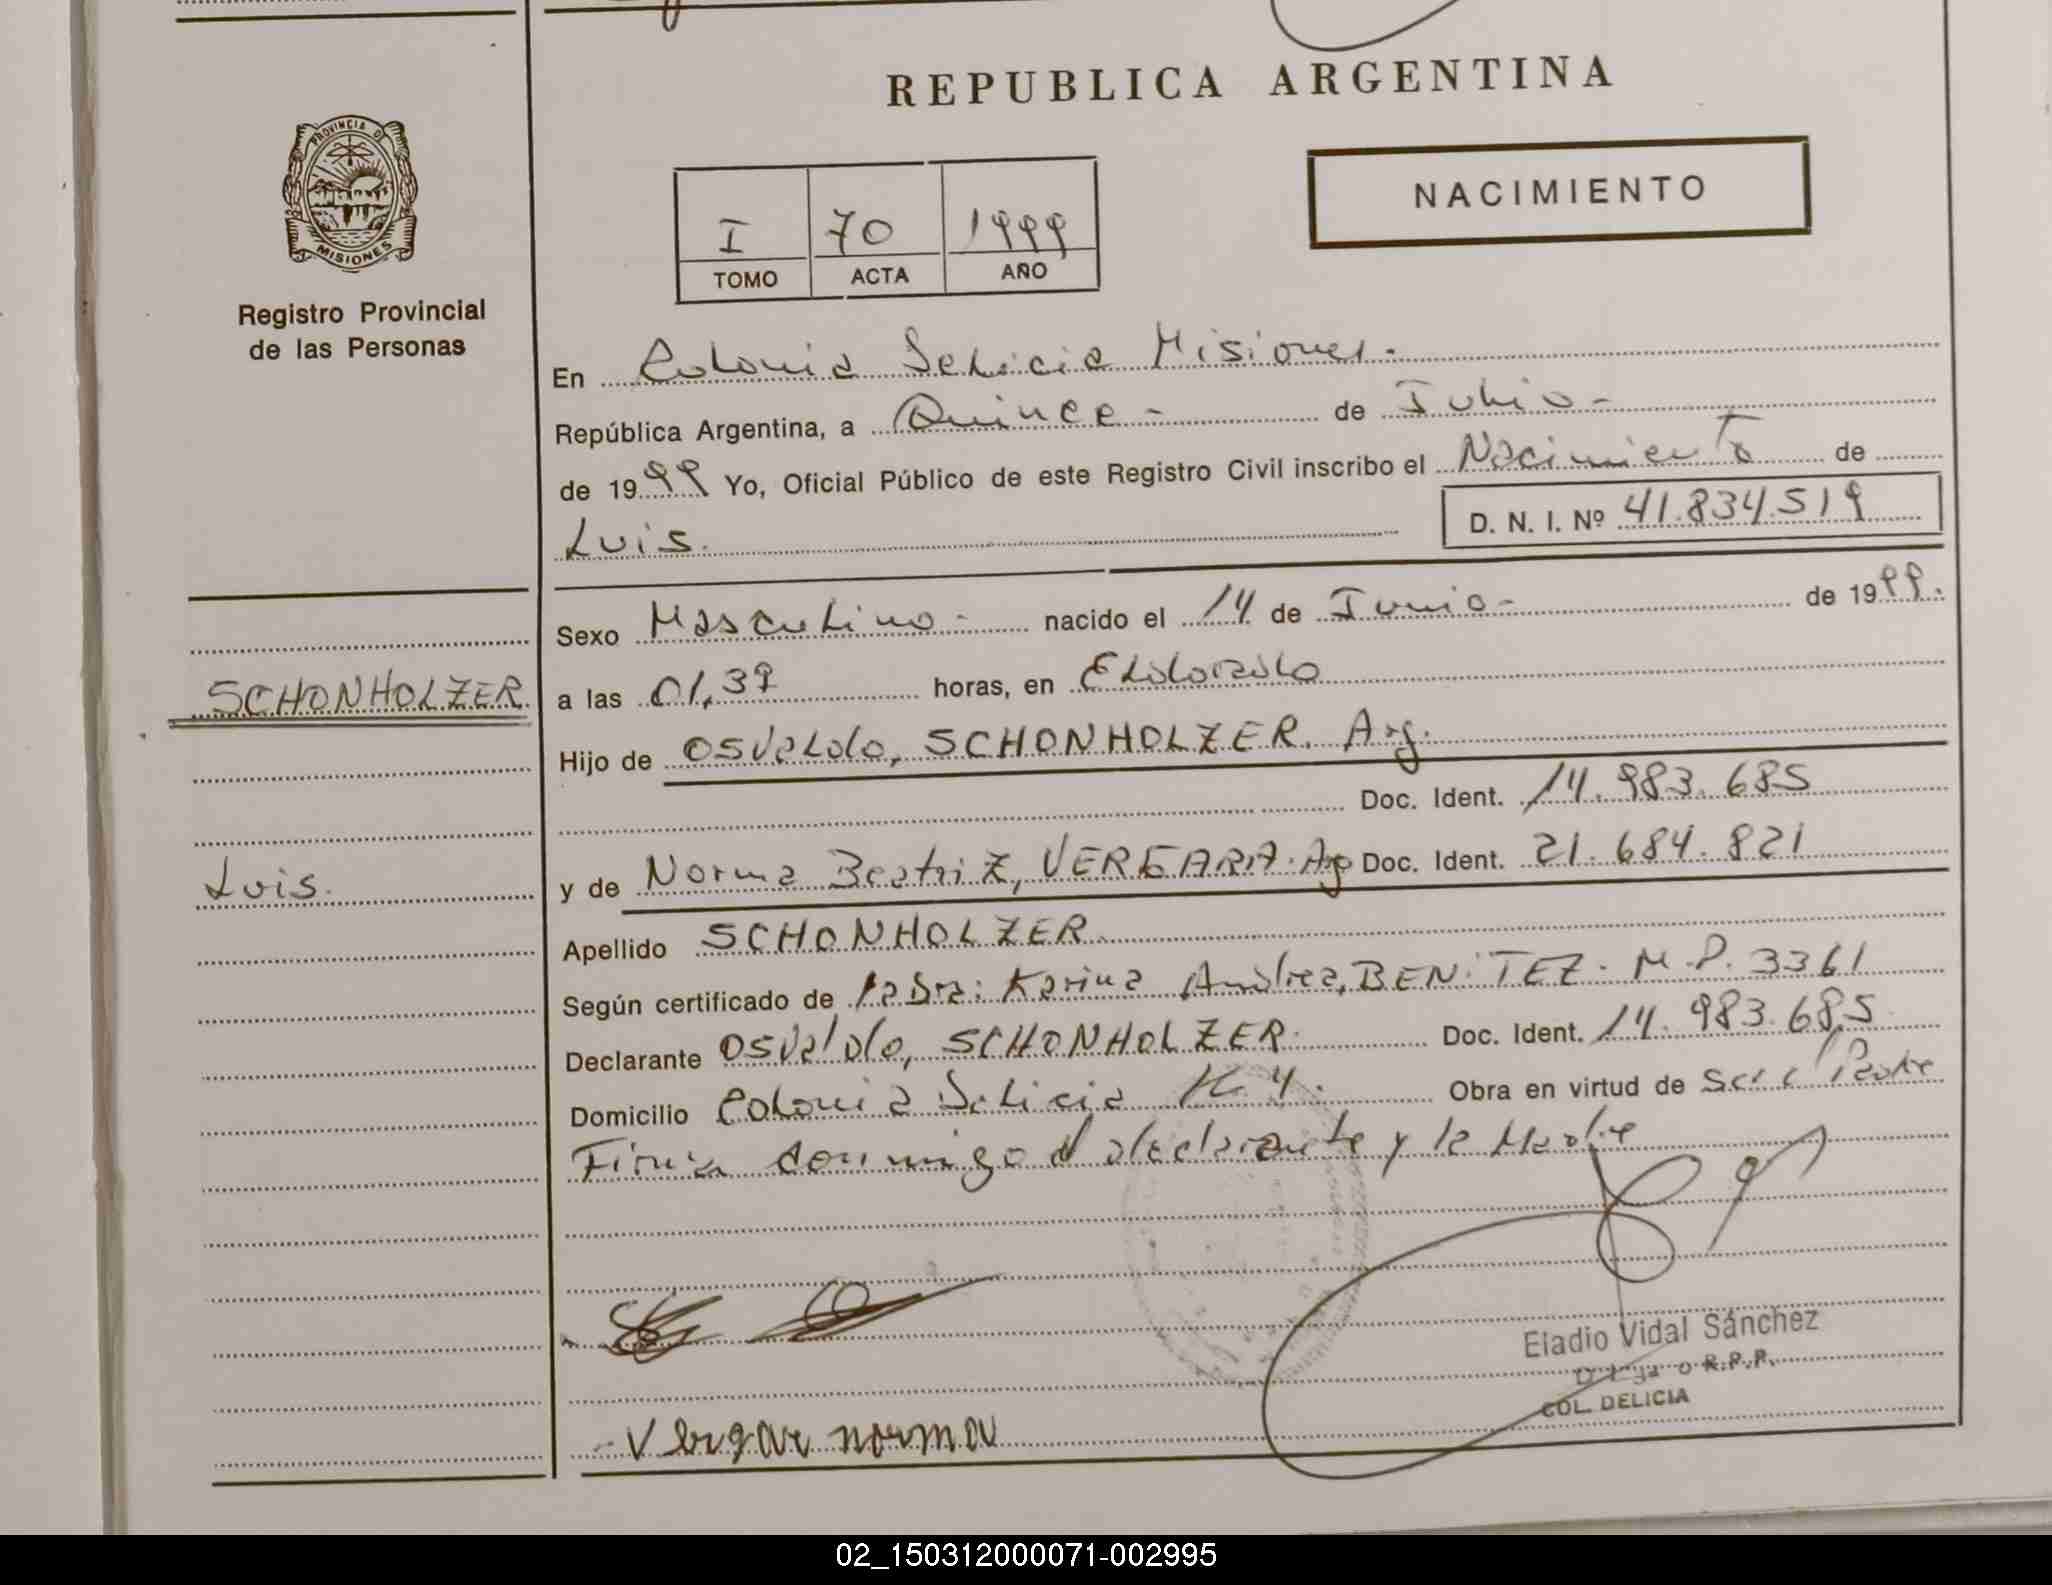 REPUBLICA ARGENTINA
PROVINCIA DE
MISIONES
Registro Provincial
de las Personas
NACIMIENTO
I 70 1999
TOMO ACTA AÑO
En Colonia Delicia Misiones.
República Argentina, a Quince - de Julio -
de 1999 Yo, Oficial Público de este Registro Civil inscribo el Nacimiento de
Luis. D. N. I. Nº 41.834.519
Sexo Masculino - nacido el 14 de Junio - de 1999.
SCHONHOLZER
a las 01,39 horas, en Eldorado
Hijo de Osvaldo, SCHONHOLZER. Arg.
Doc. Ident. 14.983.685
Luis.
y de Norma Beatriz, VERGARA. Arg Doc. Ident. 21.684.821
Apellido SCHONHOLZER
Según certificado de Karina Andrea, BENITEZ. M.P. 3361
Declarante Osvaldo, SCHONHOLZER. Doc. Ident. 14.983.685
Domicilio Colonia Delicia K. 4. Obra en virtud de ser el Padre
Firma conmigo el declarante y la Madre
Eladio Vidal Sánchez
R.P.P.
COL. DELICIA
Vergar norma
02_150312000071-002995